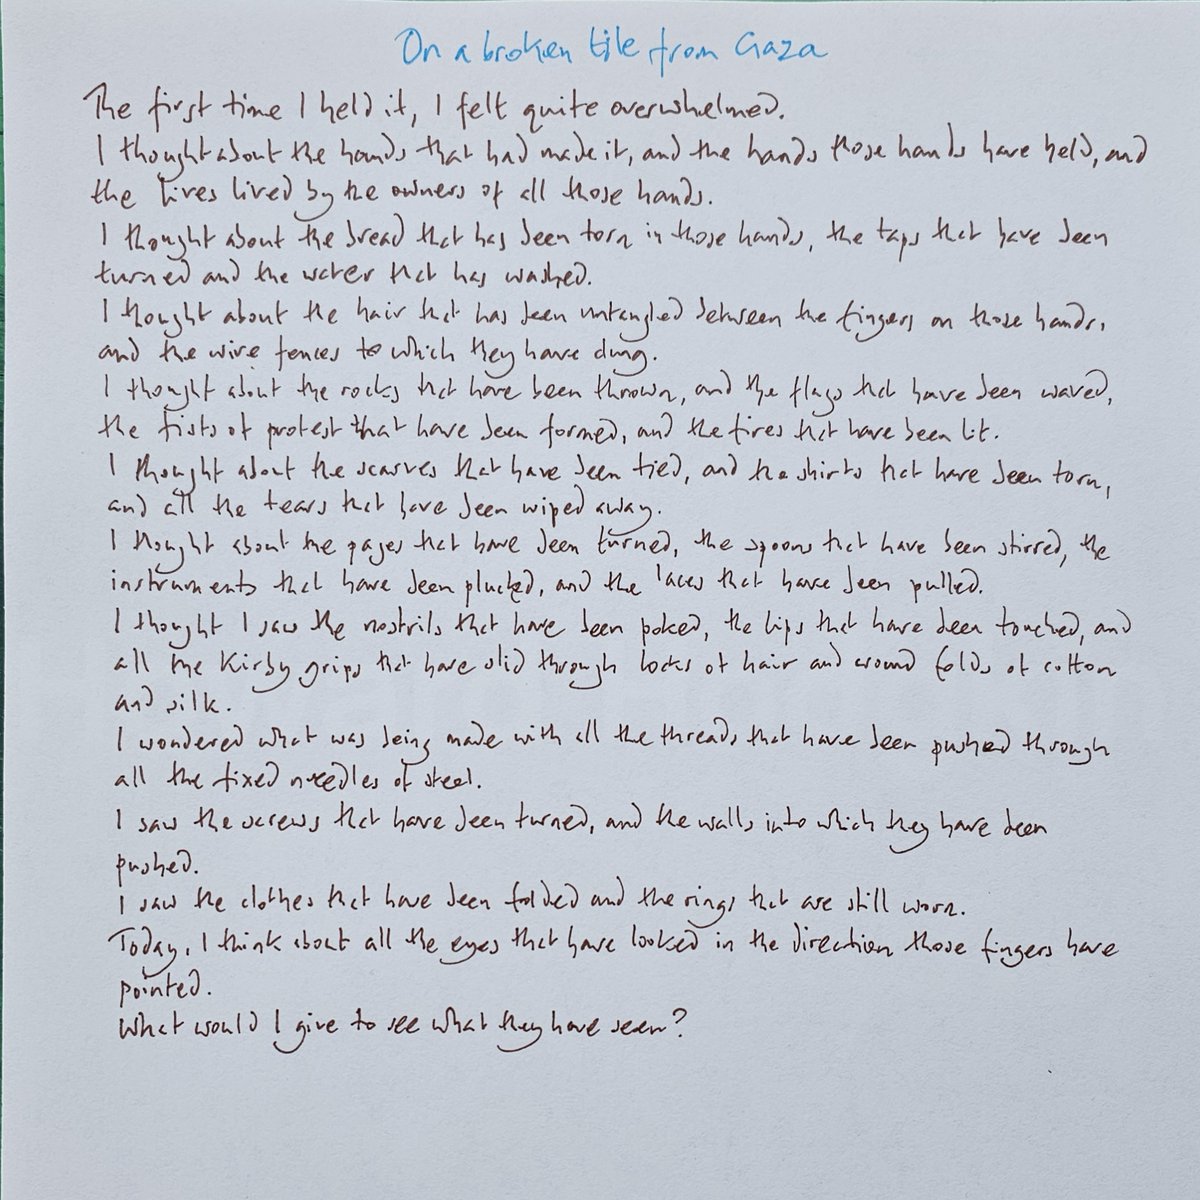 On a broken tile from Gaza
The first time I held it, I felt quite overwhelmed.
I thought about the hands that had made it, and the hands those hands have held, and
the lives lived by the owners of all those hands.
I thought about the bread that has been torn in those hands, the taps that have been
turned and the water that has washed.
I thought about the hair that has been untangled between the fingers on those hands,
and the wire fences to which they have clung.
I thought about the rocks that have been thrown, and the flags that have been waved,
the fists of protest that have been formed, and the fires that have been lit.
I thought about the scarves that have been tied, and the shirts that have been torn,
and all the tears that have been wiped away.
I thought about the pages that have been turned, the spoons that have been stirred, the
instruments that have been plucked, and the laces that have been pulled.
I thought I saw the nostrils that have been poked, the lips that have been touched, and
all the Kirby grips that have slid through locks of hair and around folds of cotton
and silk.
I wondered what was being made with all the threads that have been pushed through
all the fixed needles of steel.
I saw the screws that have been turned, and the walls into which they have been
pushed.
I saw the clothes that have been folded and the rings that are still worn.
Today, I think about all the eyes that have looked in the direction those fingers have
pointed.
What would I give to see what they have seen?